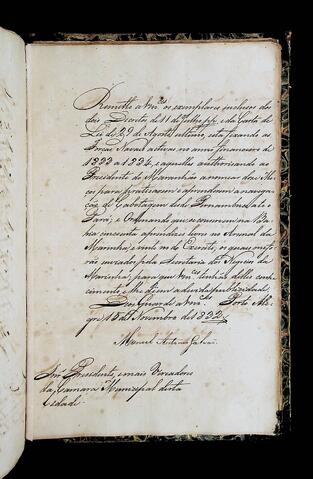 Remetto a Vm.ces os exemplares inclusos dos
dois Decretos de 11 de Julho p.p. e da Carta de
Lei de 29 de Agosto ultimo, esta fixando as
Forças Navaes activas no anno financeiro de
1833 a 1834, e aquelles authorisando ao
Presidente do Maranhão a nomear dous
para praticarem e aprenderem a navega
ção de Cabotagem desde Pernambuco até o
Pará; e Ordenando que se conservem na Ba
hia cincoenta aprendizes livres no Arsenal da
Marinha, e cem no do Exercito, os quaes me fo
rão enviados pela Secretaria dos Negocios da
Marinha, para que Vm.ces tenhão delles conhe
cimento, e lhe dem a devida publicidade.
Deos Guarde a Vm.ces Porto Ale
gre 15 de Novembro de 1832
Manoel Antonio Galvão
Snr.es Presidente, e mais Vereadores
da Camara Municipal desta
Cidade.